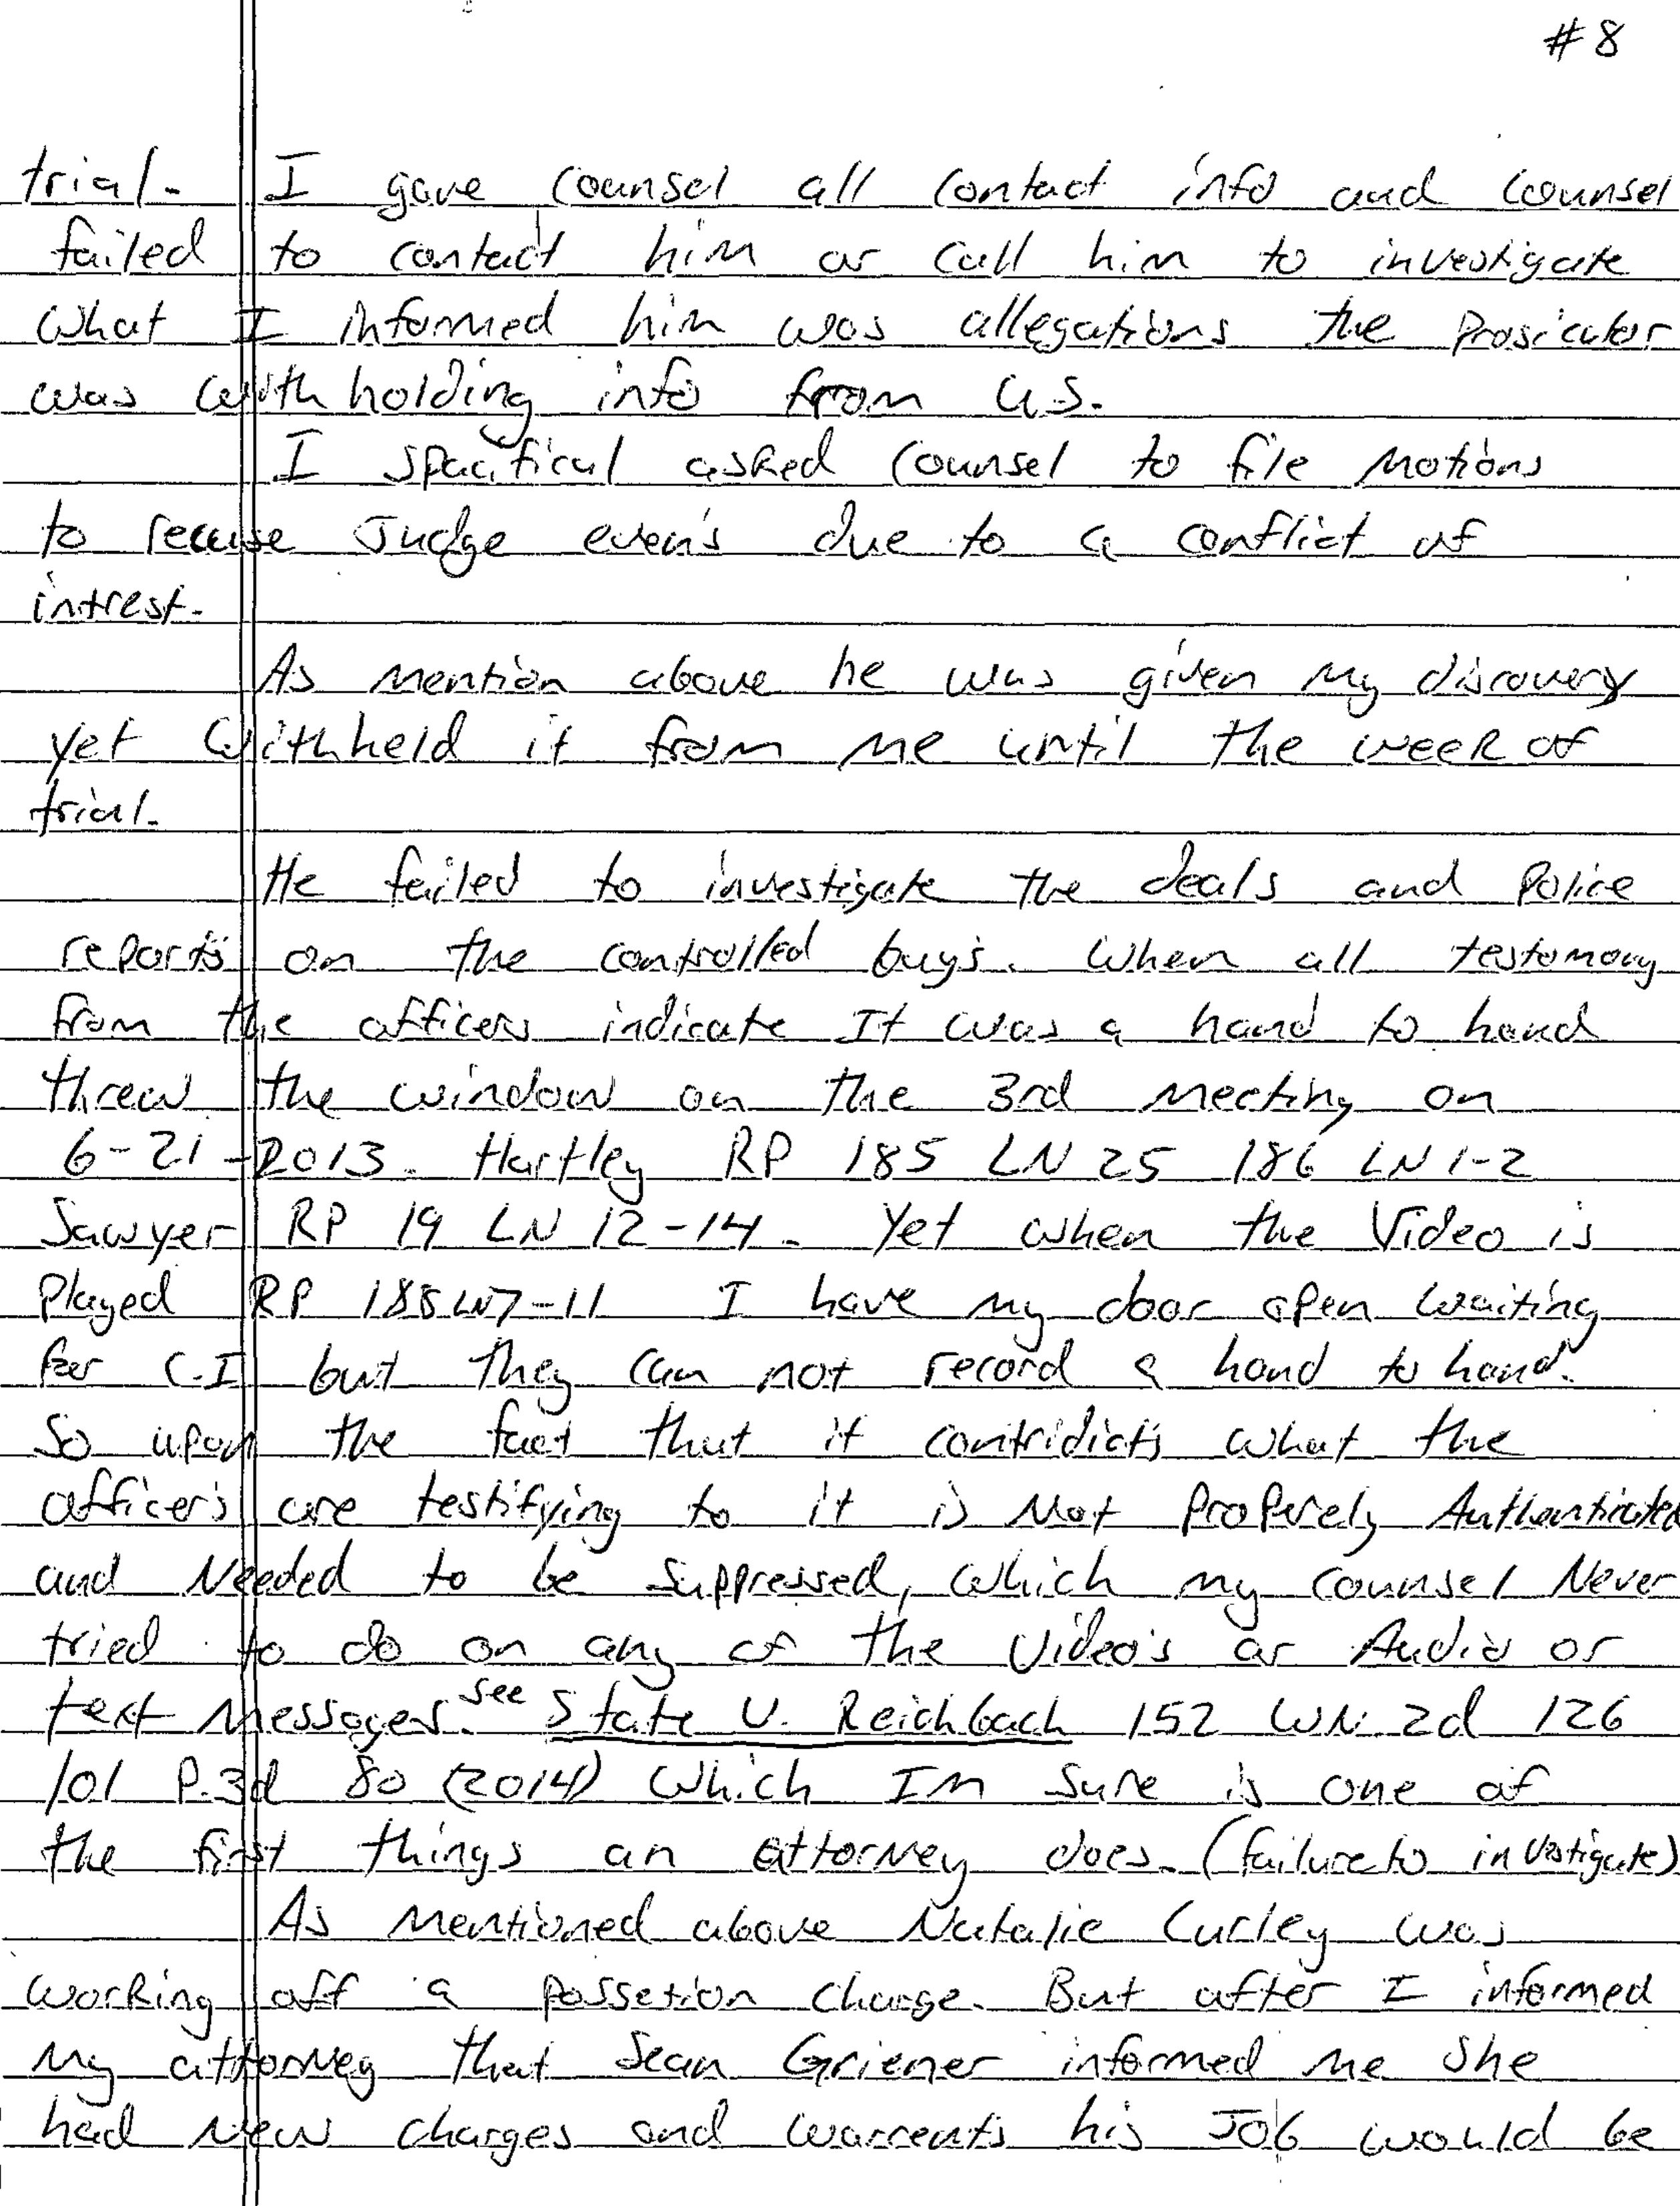 #8
trial. I gave counsel all contact info and counsel
failed to contact him or call him to investigate
what I informed him was allegations the Prosicutor
was withholding info from us.
I spacifical asked counsel to file motions
to recuse Judge even's due to a conflict of
intrest.
As mention above he was given my discovery
yet withheld it from me until the week of
trial.
He failed to investigate the deals and Police
reports on the controlled buy's. When all testomony
from the officers indicate It was a hand to hand
threw the window on the 3rd meeting on
6-21-2013. Hartley RP 185 LN 25 186 LN 1-2
Sawyer RP 19 LN 12-14. Yet when the Video is
Played RP 188 LN7-11 I have my door open waiting
for C.I but they can not record a hand to hand.
So upon the fact that it contridict's what the
officer's are testifying to it is Not ProPerely Authenticated
and Needed to be Suppressed, which my counsel Never
tried to do on any of the Video's or Audio or
text messages. see State V. Reichbach 152 WN. 2d 126
101 P.3d 80 (2014) which Im sure is one of
the first things an attorney does. (failure to investigate)
As mentioned above Natalie Curley was
working off a possetion charge. But after I informed
my attorney that Sean Griener informed me she
had New charges and warrents his JOB would be